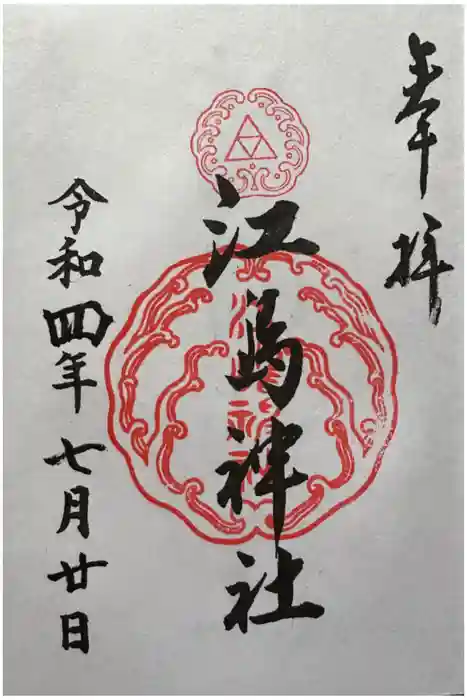 奉拝
江島神社
令和四年七月廿日